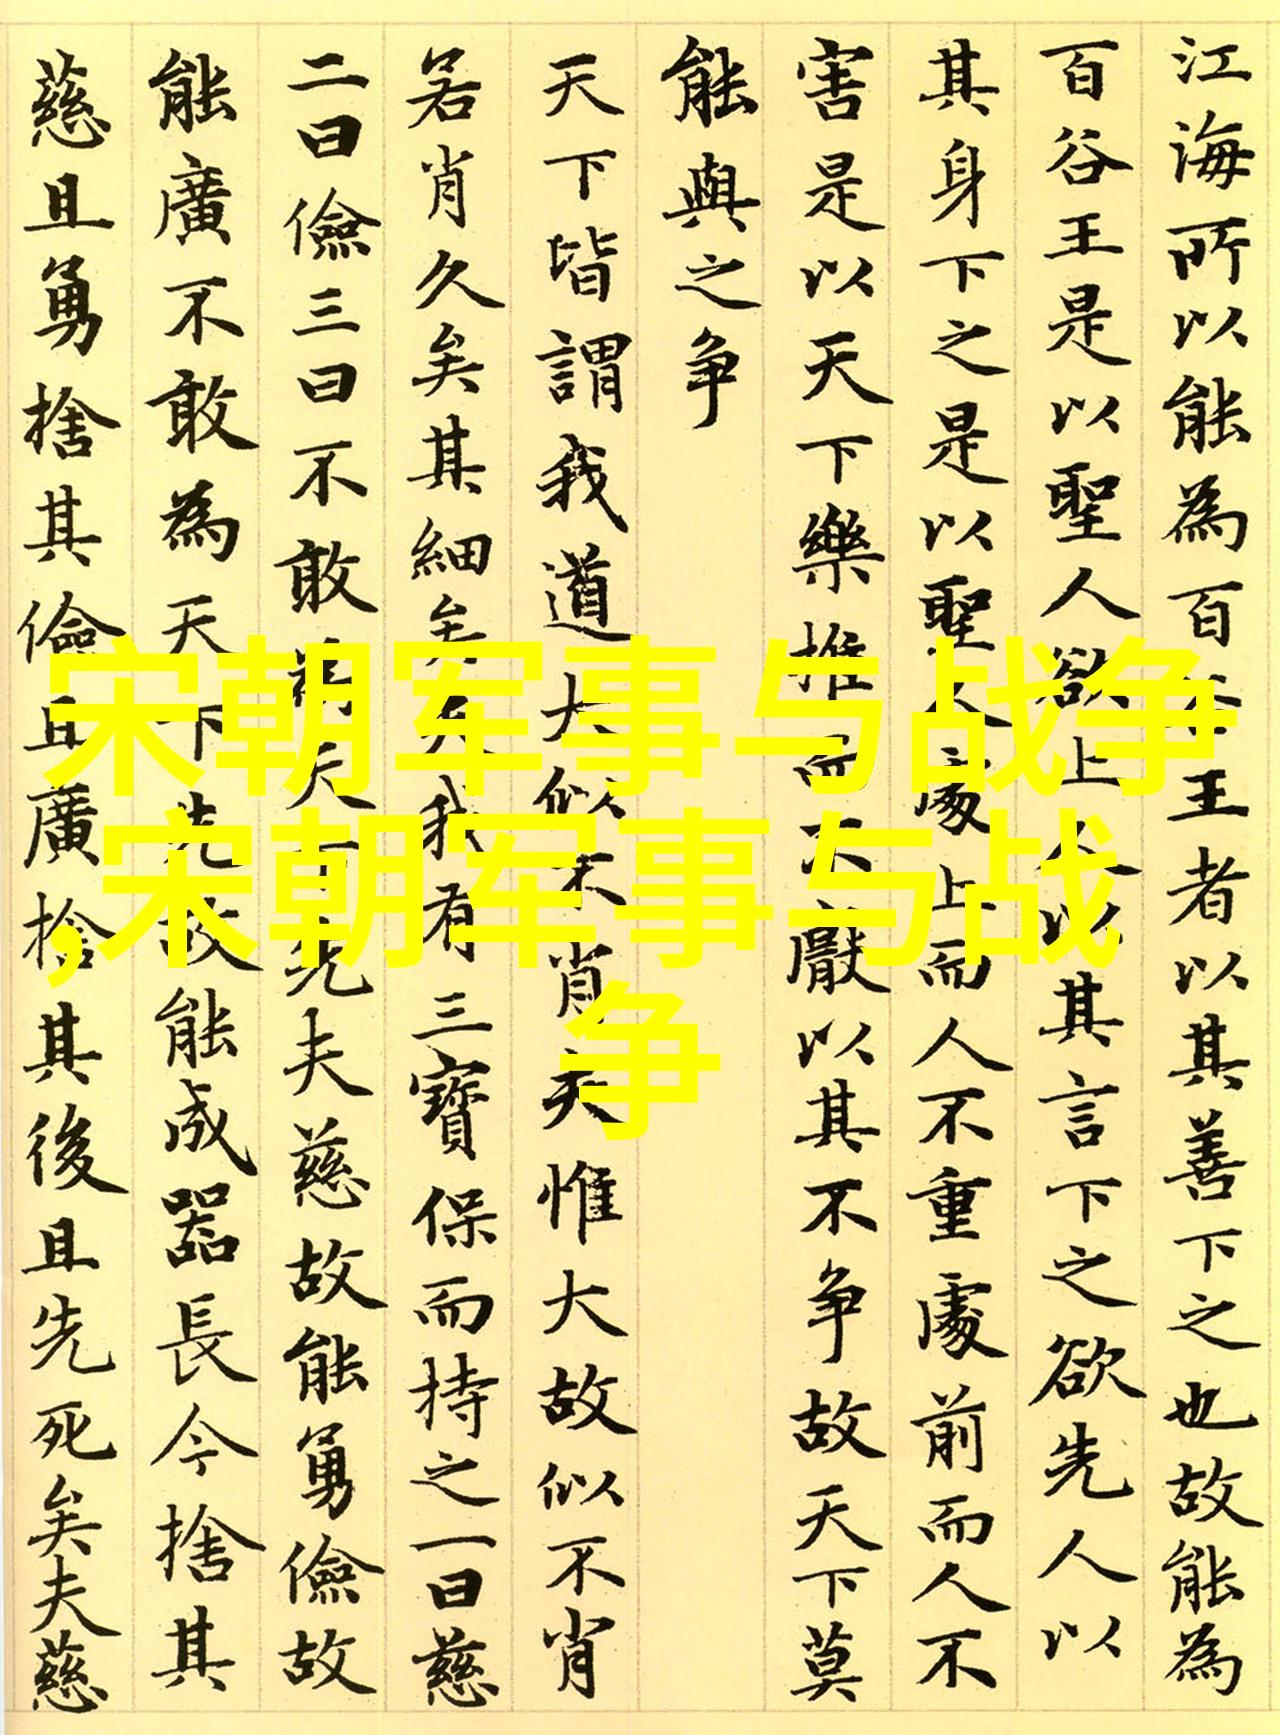 江海所以能為百谷王者以其善下之也故能為
百谷王是以聖人欲上人以其言下之欲先人以
其身下之是以聖人處上而人不重處前而人不
害是以天下樂推而不厭以其不争故天下莫
能與之争
天下皆謂我道大似不肖夫惟大故似不肖
若肖久矣其細矣夫我有三寶保而持之一曰慈
二曰儉三曰不敢為天下先夫慈故能勇儉故
能廣不敢為天下先故能成器長今捨其
慈且勇捨其儉且廣捨其後且先死矣夫慈
宋朝军事与战争
,宋朝军事与战
争